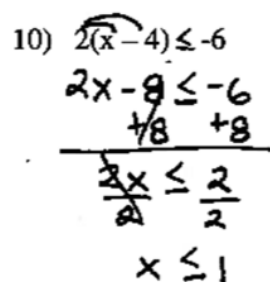 10) 2(x – 4) ≤ -6
2x - 8 ≤ -6
+8 +8
2x ≤ 2
2 2
x ≤ 1